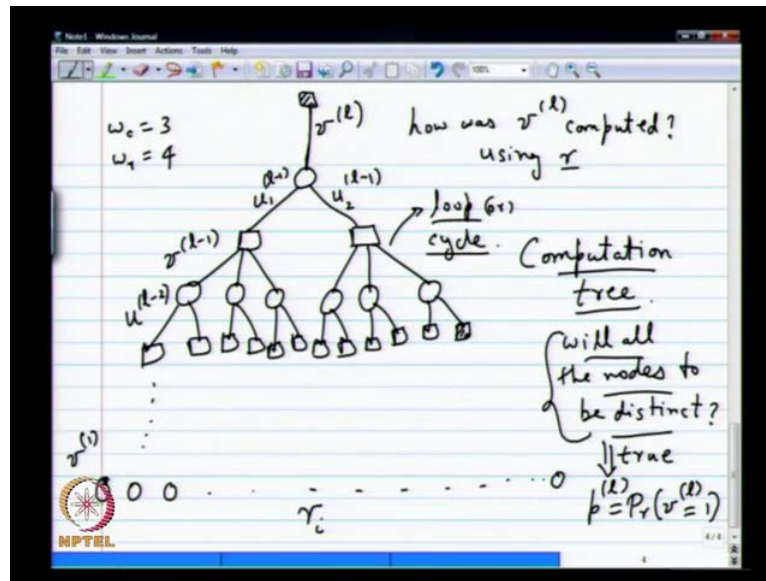 Note1 - Windows Journal
File Edit View Insert Actions Tools Help
100%
w_c = 3
w_r = 4
v^(l)
how was v^(l) computed?
using r
(l-1)
u_1
u_2^(l-1)
loop (or)
cycle.
v^(l-1)
Computation
tree.
u^(l-2)
will all
the nodes to
be distinct?
⇓ true
v^(1)
r_i
p^(l) = P_r(v^(l) = 1)
NPTEL
4/4
4